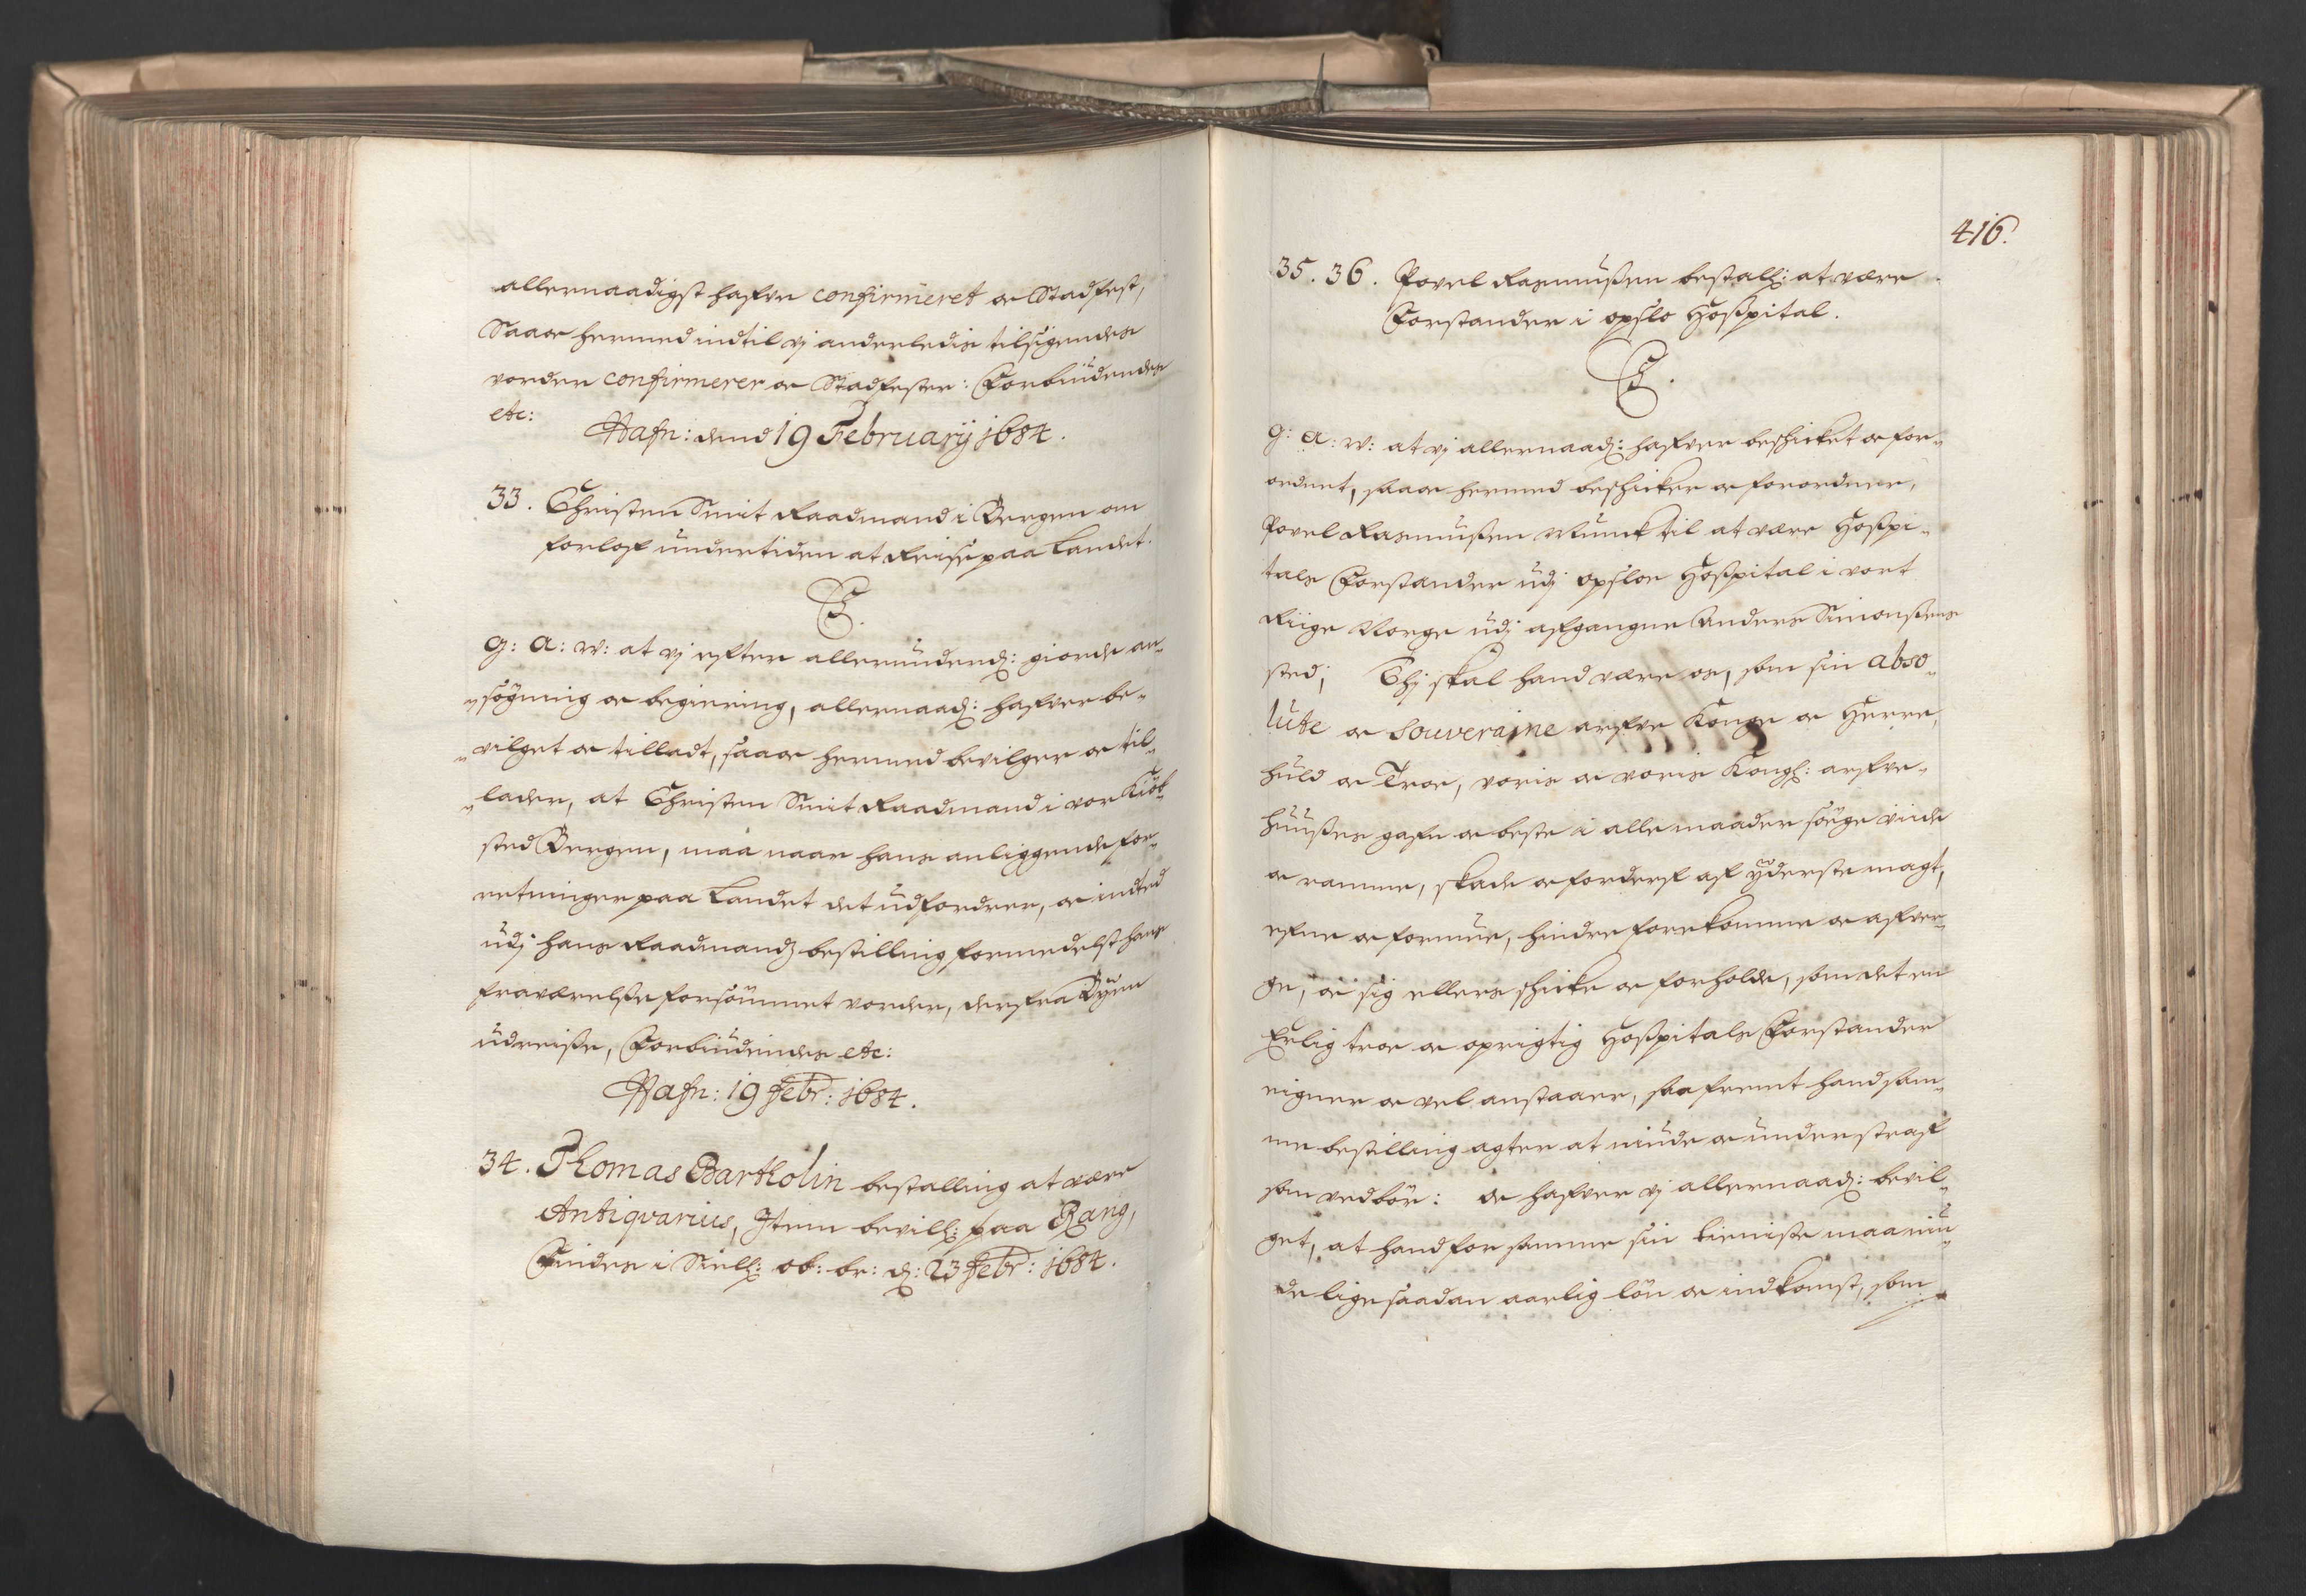 allernaadigst hafve confirmeret oc Stadfest,
Saa oc hermed indtil vj anderledis tilsigendes
vorder confirmerer oc Stadfester: Forbiudendes
etc:
Hafn: dend 19 February 1684.
33. Christen Smit Raadmand i Bergen om
forlof undertiden at Reise paa Landet.
C. 5.
g: a: w: at vj efter allerunderd: giorde an-
søgning oc begiering, allernaad: hafver be-
vilget oc tilladt, saa oc hermed bevilger oc til-
lader, at Christen Smit Raadmand i vor Kiøb-
sted Bergen, maa naar hans anliggende for-
retninger paa Landet det udfordrer, oc indted
udj hans Raadmands bestilling formedelst hans
fraværelse forsømmet vorder, derfra Byen
udreise, Forbiudendes etc:
Hafn: 19 Febr: 1684.
34. Thomas Bartholin bestalling at være
Antiqvarius, Item bevill: paa Rang,
Findes i Siell: ob: br: d: 23 Febr: 1684.
416.
35. 36. Povel Rasmussen bestall: at være
Forstander i opslo Hospital.
C. 5.
g: a: w: at vj allernaad: hafver beschicket oc for-
ordnet, saa oc hermed beschicker oc forordner,
Povel Rasmussen Munck til at være Hospi-
tals Forstander udj opsloe Hospital i vort
Riige Norge udj afgangne Anders Simonsens
sted; Thj skal hand være os, som sin abso-
lute oc Souveraine arfve Konge oc Herre,
huld oc Troe, voris oc voris Kongl: arfve-
huuses gafn oc beste i alle maader søge viide
oc ramme, skade oc forderf af yderste magt,
efne oc formue, hindre forekomme oc afver-
ge, oc sig ellers schicke oc forholde, som det en
Erlig troe oc oprigtig Hospitals Forstander
eigner oc vel anstaaer, saafremt hand sam-
me bestilling agter at niude oc under straf
som vedbør: oc hafver vj allernaad: bevil-
get, at hand for samme sin tieniste maa niu-
de lige saadan aarlig løn oc indkomst, som